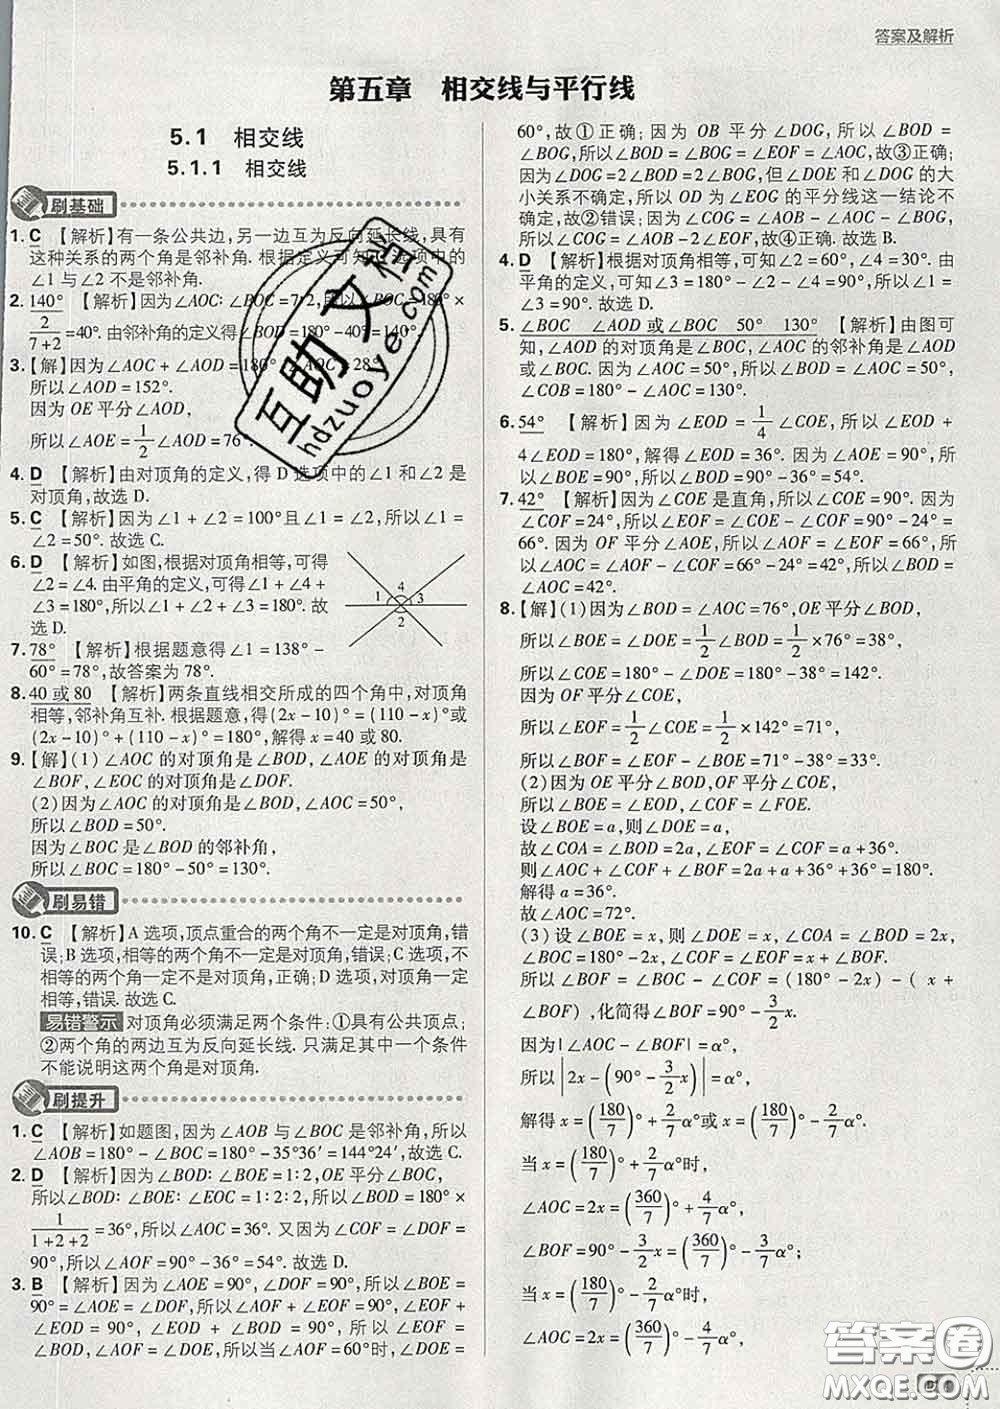 答案及解析
第五章 相交线与平行线
5.1 相交线
5.1.1 相交线
刷基础
1. C 【解析】有一条公共边,另一边互为反向延长线,具有
这种关系的两个角是邻补角.根据定义可知C选项中的
∠1与∠2不是邻补角.
2. 140° 【解析】因为∠AOC∶∠BOC=7∶2,所以∠BOC=180°×
2/(7+2)=40°.由邻补角的定义得∠BOD=180°-40°=140°.
3.【解】因为∠AOC+∠AOD=180°,∠AOC=28°,
所以∠AOD=152°.
因为OE平分∠AOD,
所以∠AOE=1/2∠AOD=76°.
4. D 【解析】由对顶角的定义,得D选项中的∠1和∠2是
对顶角,故选D.
5. C 【解析】因为∠1+∠2=100°且∠1=∠2,所以∠1=
∠2=50°.故选C.
6. D 【解析】如图,根据对顶角相等,可得
∠2=∠4.由平角的定义,可得∠1+∠4+
∠3=180°,所以∠1+∠2+∠3=180°.故
选D.
1 4 3 2
7. 78° 【解析】根据题意可得∠1=138°-
60°=78°,故答案为78°.
8. 40或80 【解析】两条直线相交所成的四个角中,对顶角
相等,邻补角互补.根据题意,得(2x-10)°=(110-x)°或
(2x-10)°+(110-x)°=180°,解得x=40或80.
9.【解】(1)∠AOC的对顶角是∠BOD,∠AOE的对顶角是
∠BOF,∠EOC的对顶角是∠DOF.
(2)因为∠AOC的对顶角是∠BOD,∠AOC=50°,
所以∠BOD=50°.
因为∠BOC是∠BOD的邻补角,
所以∠BOC=180°-50°=130°.
刷易错
10. C 【解析】A选项,顶点重合的两个角不一定是对顶角,错
误;B选项,相等的两个角不一定是对顶角,错误;C选项,不
相等的两个角一定不是对顶角,正确;D选项,对顶角一定
相等,错误.故选C.
易错警示 对顶角必须满足两个条件:①具有公共顶点;
②两个角的两边互为反向延长线.只满足其中一个条件
不能说明这两个角是对顶角.
刷提升
1. C 【解析】如题图,因为∠AOB与∠BOC是邻补角,所以
∠AOB=180°-∠BOC=180°-35°36′=144°24′,故选C.
2. D 【解析】因为∠BOD∶∠BOE=1∶2,OE平分∠BOC,
所以∠BOD∶∠BOE∶∠EOC=1∶2∶2,所以∠BOD=180°×
1/(1+2+2)=36°,所以∠AOC=36°.又因为∠COF=∠DOF=
90°,所以∠AOF=90°-36°=54°.故选D.
3. B 【解析】因为∠AOE=90°,∠DOF=90°,所以∠BOE=
90°=∠AOE=∠DOF,所以∠AOF+∠EOF=90°,∠EOF+
∠EOD=90°,∠EOD+∠BOD=90°,所以∠EOF=∠BOD,
∠AOF=∠DOE,所以当∠AOF=60°时,∠DOE=
60°,故①正确;因为OB平分∠DOG,所以∠BOD=
∠BOG,所以∠BOD=∠BOG=∠EOF=∠AOC,故③正确;
因为∠DOG=2∠BOD=2∠BOG,但∠DOE和∠DOG的大
小关系不确定,所以OD为∠EOG的平分线这一结论不
确定,故②错误;因为∠COG=∠AOB-∠AOC-∠BOG,
所以∠COG=∠AOB-2∠EOF,故④正确.故选B.
4. D 【解析】根据对顶角相等,可知∠2=60°,∠4=30°.由
平角的定义,可知∠3=180°-∠2-∠4=90°,所以∠1=
∠3=90°.故选D.
5. ∠BOC ∠AOD或∠BOC 50° 130° 【解析】由图可
知,∠AOD的对顶角是∠BOC,∠AOC的邻补角是∠AOD
或∠BOC.因为∠AOC=50°,所以∠BOD=∠AOC=50°,
∠COB=180°-∠AOC=130°.
6. 54° 【解析】因为∠EOD=1/4∠COE,所以∠EOD+
4∠EOD=180°,解得∠EOD=36°.因为∠AOE=90°,所以
∠BOE=90°,所以∠BOD=90°-36°=54°.
7. 42° 【解析】因为∠COE是直角,所以∠COE=90°.因为
∠COF=24°,所以∠EOF=∠COE-∠COF=90°-24°=
66°.因为OF平分∠AOE,所以∠AOF=∠EOF=66°,所以
∠AOC=∠AOF-∠COF=66°-24°=42°,所以∠BOD=
∠AOC=42°.
8.【解】(1)因为∠BOD=∠AOC=76°,OE平分∠BOD,
所以∠BOE=∠DOE=1/2∠BOD=1/2×76°=38°,
所以∠COE=180°-∠DOE=180°-38°=142°.
因为OF平分∠COE,
所以∠EOF=1/2∠COE=1/2×142°=71°,
所以∠BOF=∠EOF-∠BOE=71°-38°=33°.
(2)因为OE平分∠BOD,OF平分∠COE,
所以∠BOE=∠EOD,∠COF=∠FOE.
设∠BOE=a,则∠DOE=a,
故∠COA=∠BOD=2a,∠EOF=∠COF=a+36°.
则∠AOC+∠COF+∠BOF=2a+a+36°+36°=180°.
解得a=36°.
故∠AOC=72°.
(3)设∠BOE=x,则∠DOE=x,∠COA=∠BOD=2x,
∠BOC=180°-2x,∠COF=∠EOF=x+∠BOF.
所以∠BOF=∠BOC-∠COF=(180°-2x)-(x+
∠BOF),化简得∠BOF=90°-3/2x.
因为|∠AOC-∠BOF|=α°,
所以|2x-(90°-3/2x)|=α°,
解得x=(180/7)°+2/7α°或x=(180/7)°-2/7α°.
当x=(180/7)°+2/7α°时,
∠AOC=2x=(360/7)°+4/7α°,
∠BOF=90°-3/2x=(360/7)°-3/7α°;
当x=(180/7)°-2/7α°时,
∠AOC=2x=(360/7)°-4/7α°,
互助文档
hdzuoye.com
答案圈
MXQE.COM